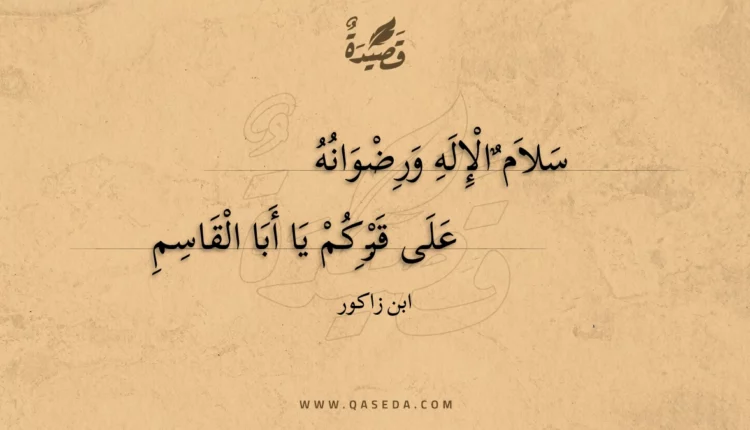 قَصِيدَةٌ
سَلاَمٌ الْإِلَهِ وَرِضْوَانُهُ
عَلَى قَبْرِكُمْ يَا أَبَا الْقَاسِمِ
ابن زاكور
WWW.QASEDA.COM